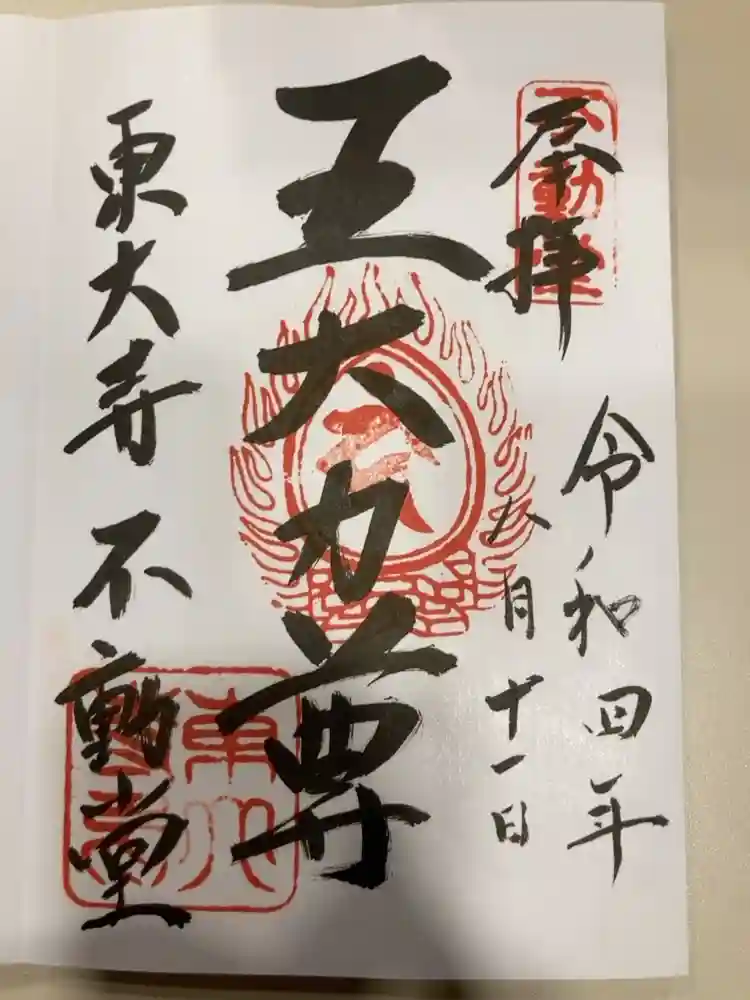 奉拝
不動堂
令和四年
八月十一日
五大力尊
東大寺 不動堂
東大寺